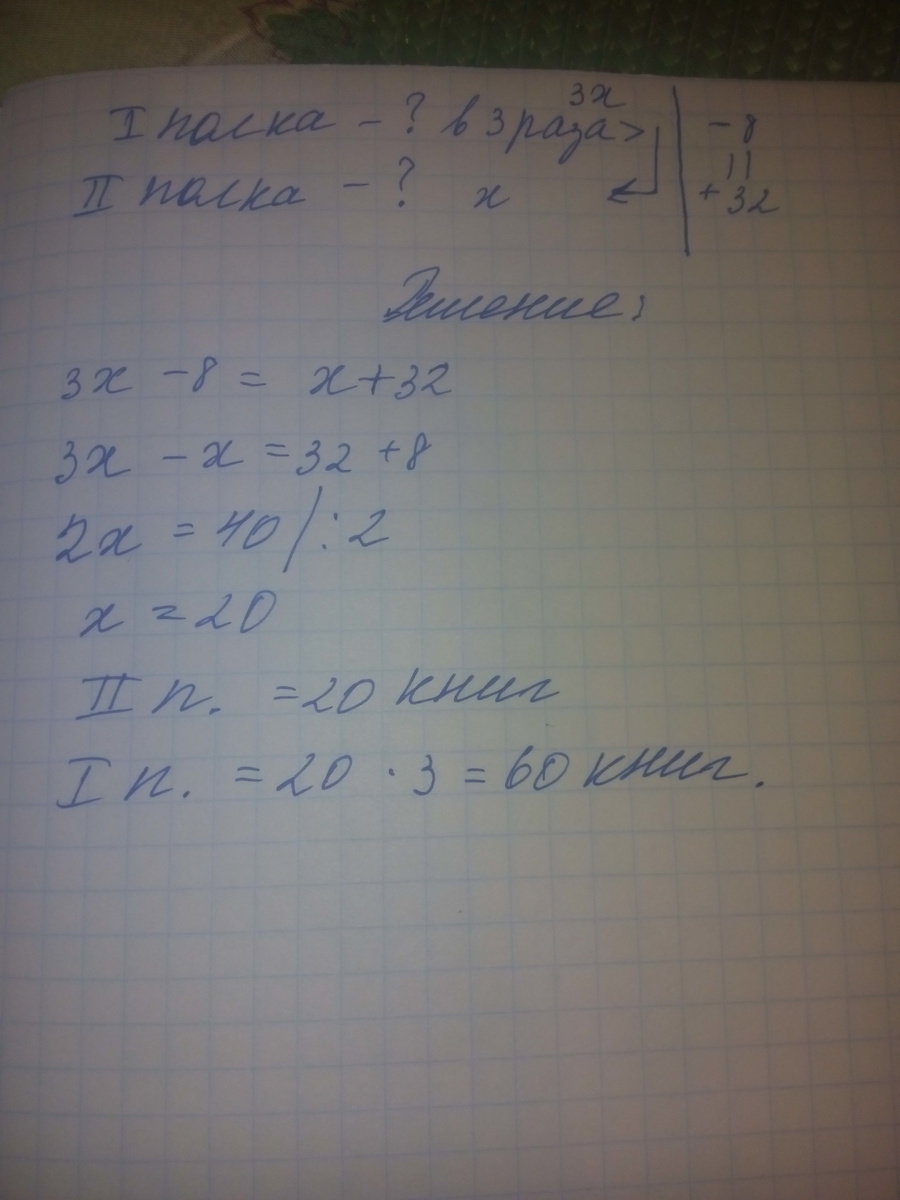 I полка - ? в 3 раза > 3x | - 8
||
II полка - ? x | + 32
Решение:
3x - 8 = x + 32
3x - x = 32 + 8
2x = 40 / : 2
x = 20
II п. = 20 книг
I п. = 20 · 3 = 60 книг.